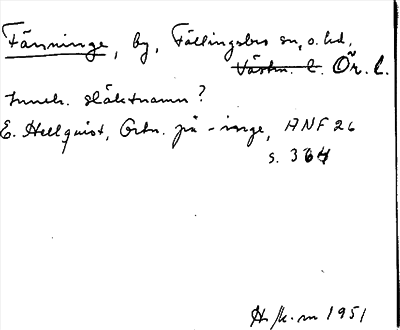 Fänninge, by, Fellingsbro sn, o. hd,
Västm. l. Ör. l.
Inneh. släktnamn?
E. Hellquist, Ortn. på -inge, ANF 26
s. 364
1951